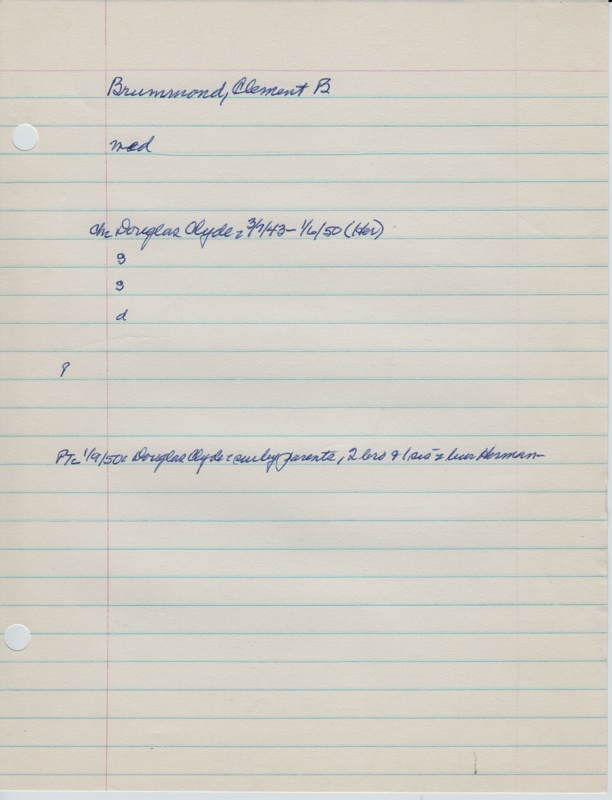 Brummond, Clement B
med
ch: Douglas Clyde: 3/7/43 - 1/6/50 (Her)
s
s
d
?
PT: 1/9/50: Douglas Clyde: sur by parents, 2 bro & 1 sis: bur Herman